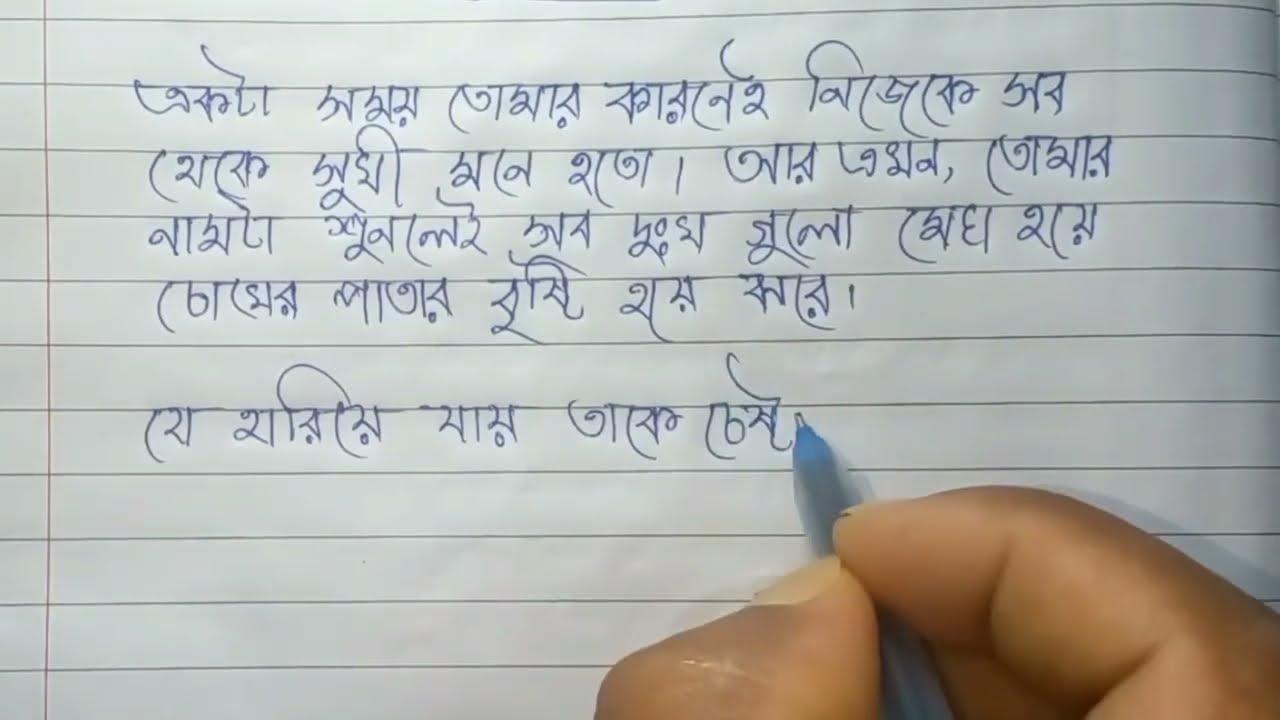 একটা সময় তোমার কারনেই নিজেকে সব
থেকে সুখী মনে হতো। আর এখন, তোমার
নামটা শুনলেই সব দুঃখ গুলো মেঘ হয়ে
চোখের পাতার বৃষ্টি হয়ে ঝরে।
যে হারিয়ে যায় তাকে চেষ্ট